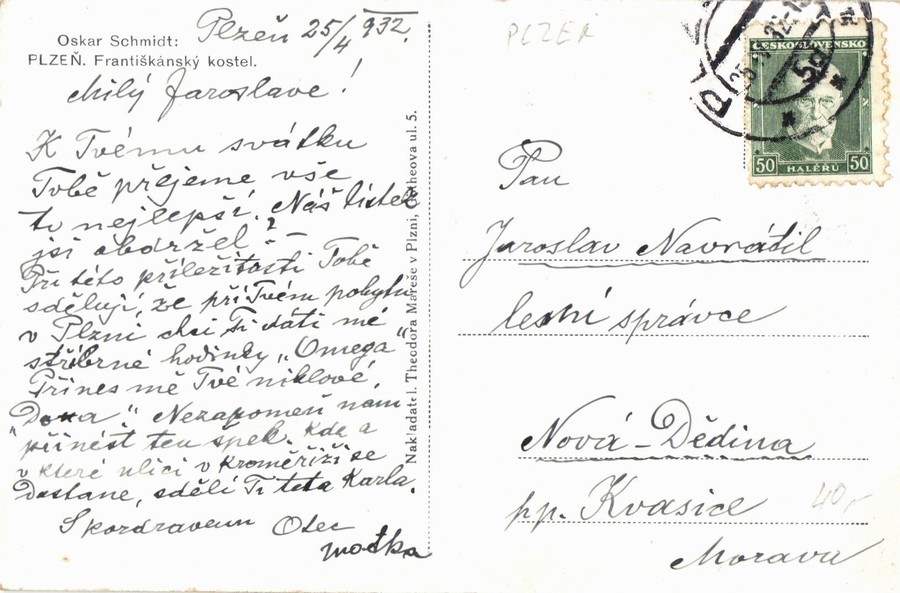 Oskar Schmidt:
PLZEŇ. Františkánský kostel.
Plzeň 25/4 932.
Milý Jaroslave!
K Tvému svátku
Tobě přejeme vše
to nejlepší. Náš lístek
jsi obdržel?
Při této příležitosti Tobě
sděluji, že při Tvém pobytu
v Plzni chci Ti dáti mé
stříbrné hodinky „Omega"
Přines mě Tvé niklové
Nezapomeň nám
přinést ten spek. Kde a
v které ulici v Kroměříži se
dostane, sdělí Ti teta Karla.
S pozdravem Otec
matka
Nakladatel Theodora Mareše v Plzni, Goetheova ul. 5.
PLZEŇ
ČESKOSLOVENSKO
50 HALÉŘŮ 50
Pan
Jaroslav Navrátil
lesní správce
Nová-Dědina
pp. Kvasice
Morava
40,-